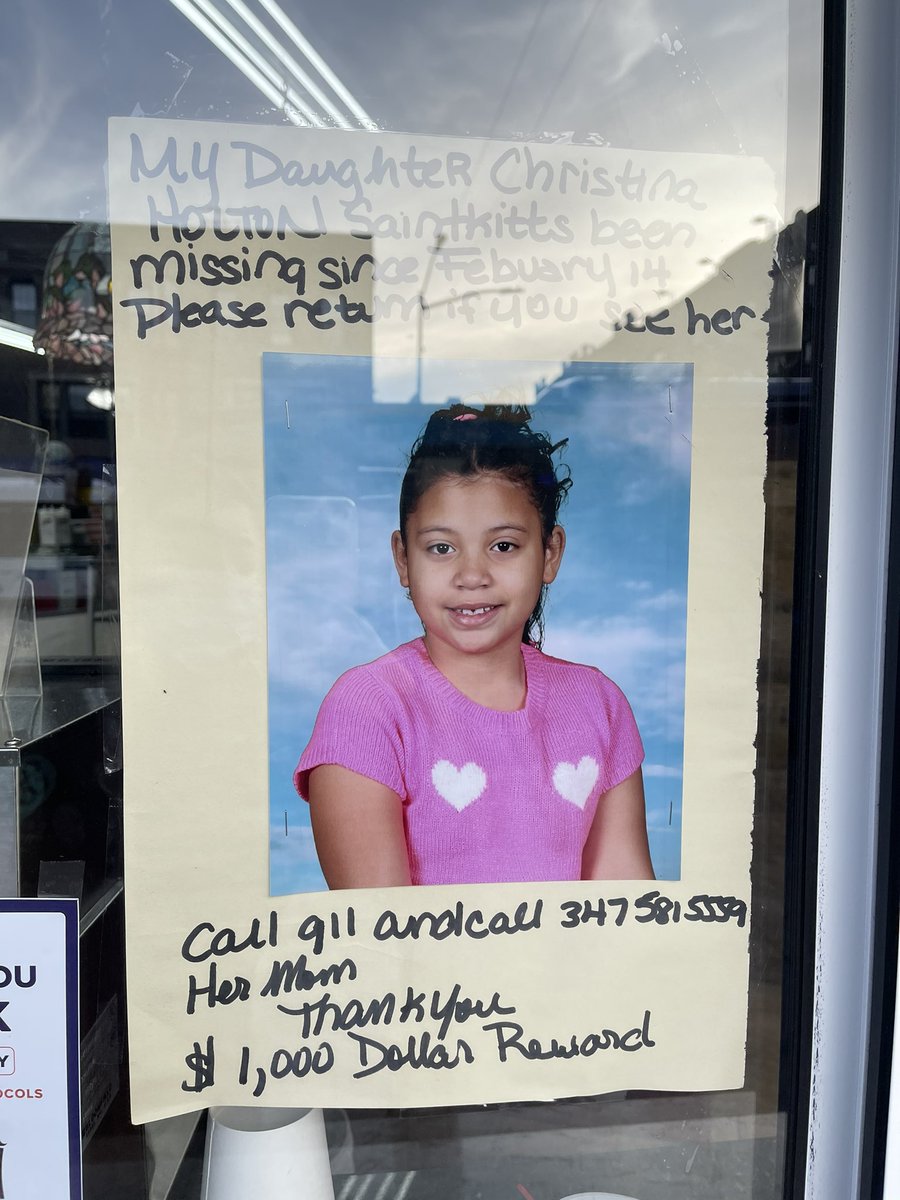 My Daughter Christina
Holton Saintkitts been
missing since Febuary 14
Please return if you see her
Call 911 and call 347 581 5559
Her Mom
Thank You
$ 1,000 Dollar Reward
OU
K
Y
OCOLS